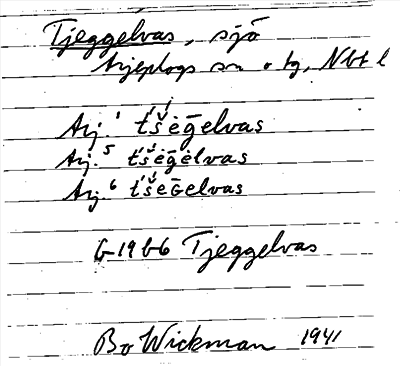 Tjeggelvas, sjö
Arjeplogs sn o tg, Nbt l
Arj.¹ t́š́ėḡelvas
Arj.⁵ t́š́ėḡėlvas
Arj.⁶ t́š́ėɢelvas
G 19 b6 Tjeggelvas
Bo Wickman 1941